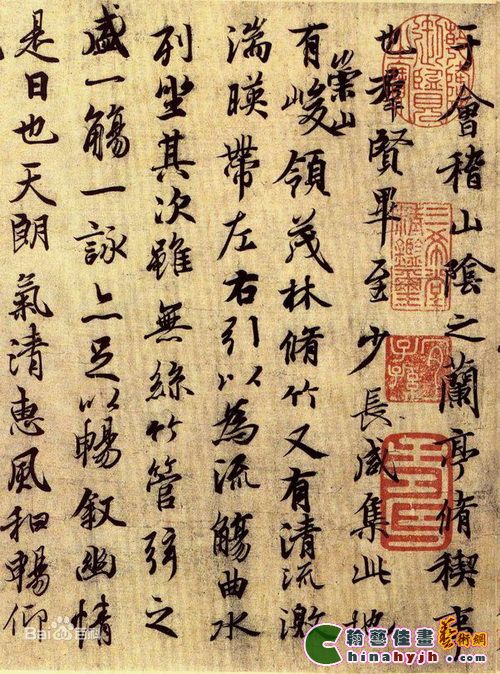 于會稽山陰之蘭亭脩稧事
也羣賢畢至少長咸集此地
有崇山峻領茂林脩竹又有清流激
湍暎帶左右引以為流觴曲水
列坐其次雖無絲竹管弦之
盛一觴一詠亦足以暢敘幽情
是日也天朗氣清惠風和暢仰
三希堂精鑑璽
宜子孫
Bai百科
翰藝佳畫藝術網
Chinahyjh.com